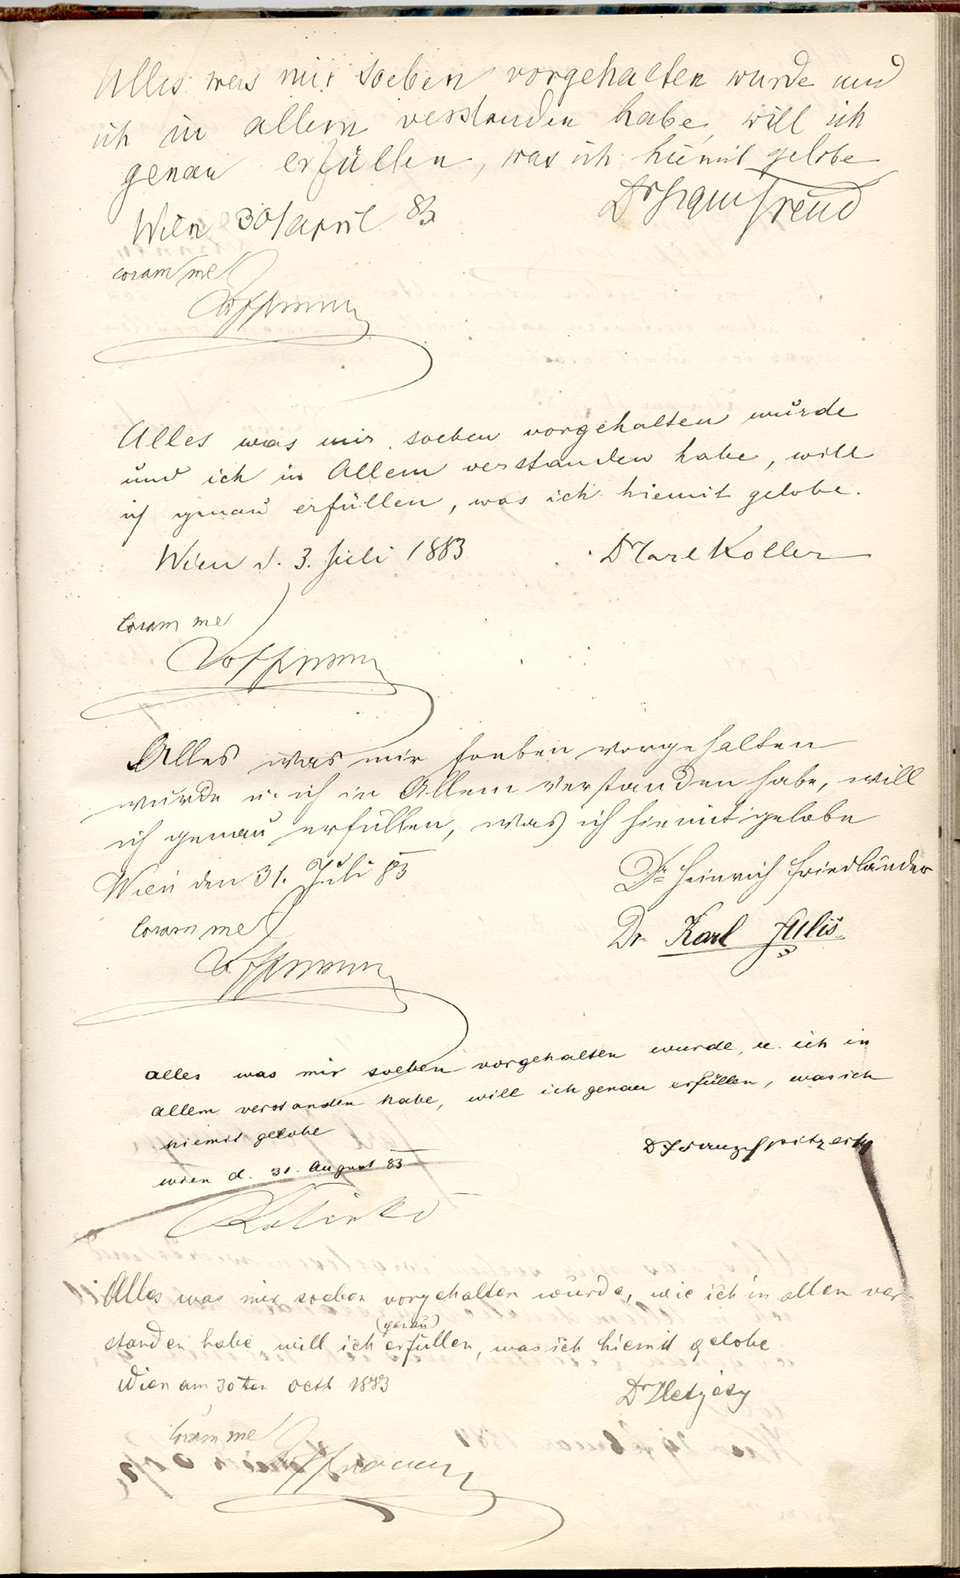 Alles was mir soeben vorgehalten wurde und
ich in allem verstanden habe, will ich
genau erfüllen, was ich hiemit gelobe
Wien 30/april 83
Dr Sigm Freud
coram me
Hoffmann
Alles was mir soeben vorgehalten wurde
und ich in Allem verstanden habe, will
ich genau erfüllen, was ich hiemit gelobe.
Wien d. 3. Juli 1883
Dr Carl Koller
Coram me
Hoffmann
Alles was mir soeben vorgehalten
wurde u. ich in Allem verstanden habe, will
ich genau erfüllen, was ich hiemit gelobe
Wien den 31. Juli 83
Dr Heinrich Friedländer
Coram me
Dr Karl
Hoffmann
alles was mir soeben vorgehalten wurde, u. ich in
allem verstanden habe, will ich genau erfüllen, was ich
hiemit gelobe
Dr Franz
wien d. 31. August 83
Alles was mir soeben vorgehalten wurde, wie ich in allen ver
(genau)
standen habe, will ich erfüllen, was ich hiemit gelobe
Wien am 30ten Octb 1883
Coram me
Hoffmann